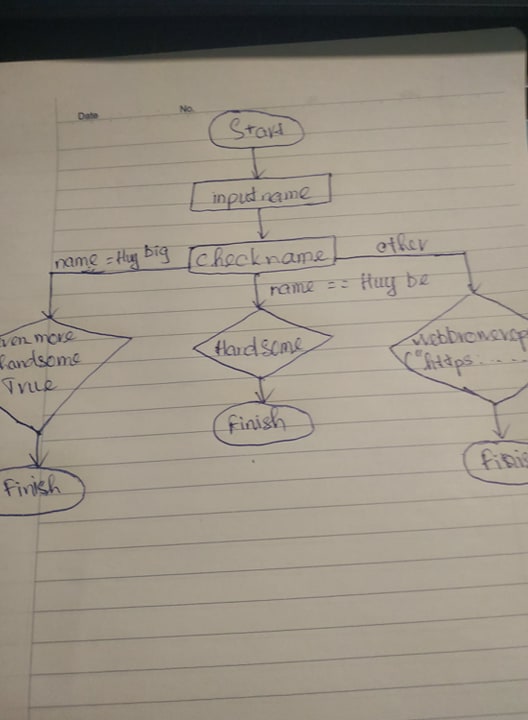 Date No.
Start
input name
check name
name = Huy big
other
name == Huy be
ven more
handsome
True
Handsome
webbrowserop
("https.....
finish
finish
finis